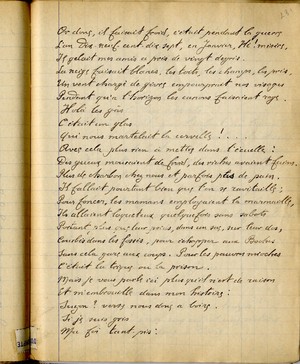 Or donc, il faisait froid, c'était pendant la guerre
L'an Dix-neuf cent dix sept, en Janvier, Hé! misère,
Il gelait mes amis à près de vingt degrés.
La neige faisait blancs, les toits, les champs, les prés.
Un vent chargé de givres empourprait nos visages
Pendant qu'à l'horizon les canons faisaient rage.
Holà les gâs
C'était un glas
Qui nous martelait la cervelle! . . . .
Avec cela plus rien à mettre dans l'écuelle:
Des gueux mouraient de froid, des riches avaient
Plus de charbon chez nous et parfois plus de pain.
Il fallait pourtant bien que l'on se ravitaille;
Pour foncer, les mamans employaient la marmaille,
Ils allaient loqueteux quelquefois sans sabots
Portant, plus gros que eux, dans un sac, sur leur dos,
Courbés dans les fossés, pour échapper aux
Sans cela gare aux coups. Pour les pauvres mioches
C'était la trique ou la prison.
Mais je vous parle ici plus qu'il n'est de raison
Et m'embrouille dans mon histoire:
Suzon? verse nous donc à boire.
Si je suis gris
Ma foi tant pis: